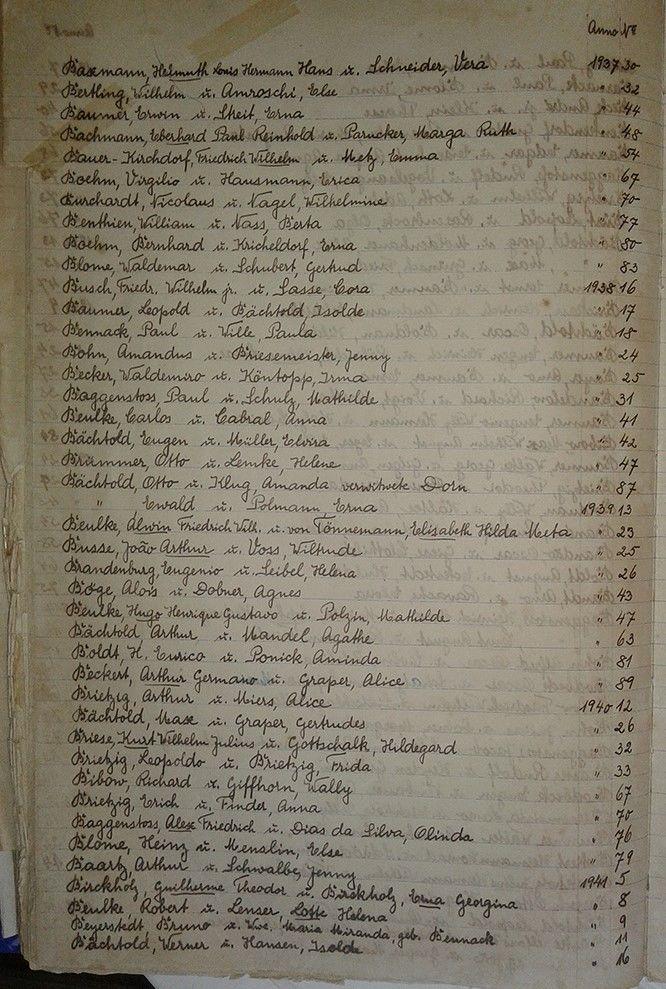 Anno No
Baxmann, Helmuth Louis Hermann Hans u. Schneider, Vera 1937 30
Bertling, Wilhelm u. Amroschi, Else " 32
Bauner Erwin u. Streit, Erna " 44
Bachmann, Eberhard Paul Reinhold u. Parucker, Marga Ruth " 48
Bauer-Kirchdorf, Friedrich Wilhelm u. Metz, Emma " 54
Boehm, Virgilio u. Hausmann, Erica " 67
Burchardt, Nicolaus u. Nagel, Wilhelmine " 70
Benthien, William u. Nass, Berta " 77
Boehm, Bernhard u. Kricheldorf, Erna " 80
Blome, Waldemar u. Schubert, Gertrud " 83
Busch, Friedr. Wilhelm jr. u. Sasse, Cora 1938 16
Baumer, Leopold u. Bächtold, Isolde " 17
Bennack, Paul u. Wille, Paula " 18
Böhn, Amandus u. Briesemeister, Jenny " 24
Becker, Waldemiro u. Köntopp, Irma " 25
Baggenstoss, Paul u. Schulz, Mathilde " 31
Beulke, Carlos u. Cabral, Anna " 41
Bächtold, Eugen u. Müller, Elvira " 42
Brümmer, Otto u. Lemke, Helene " 47
Bächtold, Otto u. Klug, Amanda verwitwete Dorn " 87
" Ewald u. Polmann, Erna 1939 13
Beulke, Alwin Friedrich Wilh. u. von Tönnemann, Elisabeth Hilda Meta " 23
Busse, João Arthur u. Voss, Wiltrude " 25
Brandenburg, Eugenio u. Seibel, Helena " 26
Böge, Alois u. Dobner, Agnes " 43
Beulke, Hugo Henrique Gustavo u. Polzin, Mathilde " 47
Bächtold, Arthur u. Mandel, Agathe " 63
Boldt, H. Eurico u. Ponick, Aminda " 81
Beckert, Arthur Germano u. Graper, Alice " 89
Brietzig, Arthur u. Miers, Alice 1940 12
Bächtold, Max u. Graper, Gertrudes " 26
Briese, Kurt Wilhelm Julius u. Gottschalk, Hildegard " 32
Brietzig, Leopoldo u. Brietzig, Frida " 33
Bibow, Richard u. Giffhorn, Wally " 67
Brietzig, Erich u. Finder, Anna " 70
Baggenstoss, Alex Friedrich u. Dias da Silva, Olinda " 76
Blome, Heinz u. Menslin, Else " 79
Baartz, Arthur u. Schwalbe, Jenny 1941 5
Birckholz, Guilherme Theodor u. Birckholz, Erna Georgina " 8
Beulke Robert u. Lenser, Lotte Helena " 9
Beyerstedt, Bruno u. Wwe. Maria Miranda, geb. Bennack " 11
Bächtold, Werner u. Hansen, Isolde " 16